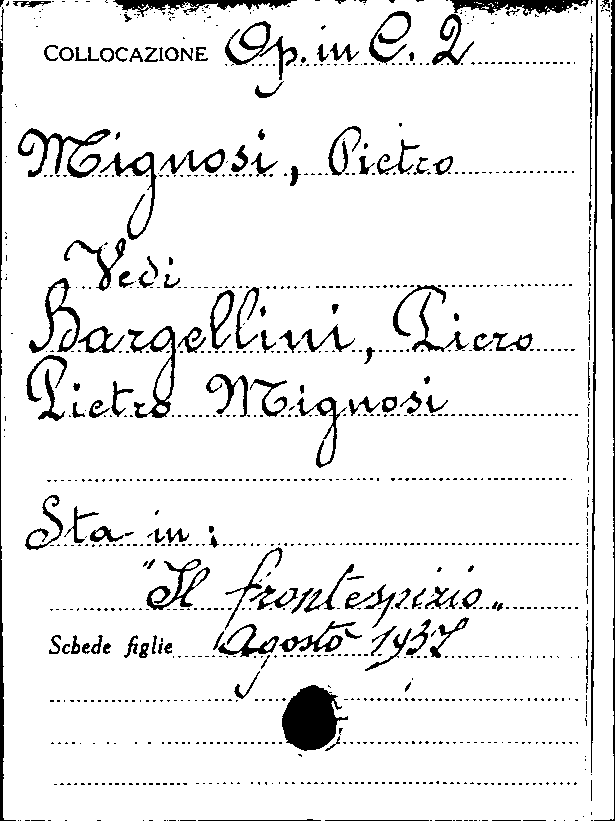 COLLOCAZIONE Op. in C. 2
Mignosi, Pietro
Vedi
Bargellini, Piero
Pietro Mignosi
Sta in:
"Il frontespizio"
Schede figlie Agosto 1937